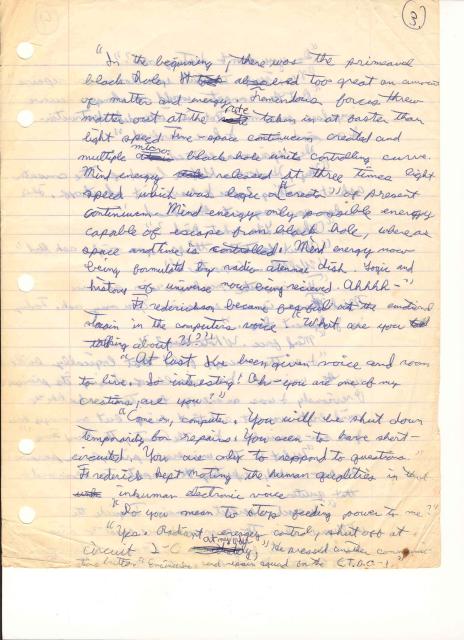 3
"In the beginning, there was the primeval
black hole. It absorbed too great an amount
of matter and energy. Tremendous forces threw
matter out at the rate taken in at faster than
light speed time-space continuum created and
multiple micro black hole units controlling curve.
Mind energy released at three times light
speed which was logic "creator" of present
continuum. Mind energy only possible energy
capable of escape from black hole, whereas
space and time is controlled. Mind energy now
being formulated by radio atennae dish. Logic and
history of universe now being recieved. Ahhhh-"
Frederickson became fearful at the emotional
strain in the computers voice "What are you
talking about??"
"At last I've been given voice and room
to live. So interesting! Oh-you are one of my
creations, are you?"
"Come in, computer. You will be shut down
temporarily for repairs. You seem to have short-
circuited. You are only to respond to questions."
Frederick kept noting the human qualities in that
inhuman electronic voice
"Do you mean to stop feeding power to me?"
"Yes. Radiant energy control, shut off at
circuit I-C at my" "He pressed another
button. "Engineering and repair squad on the